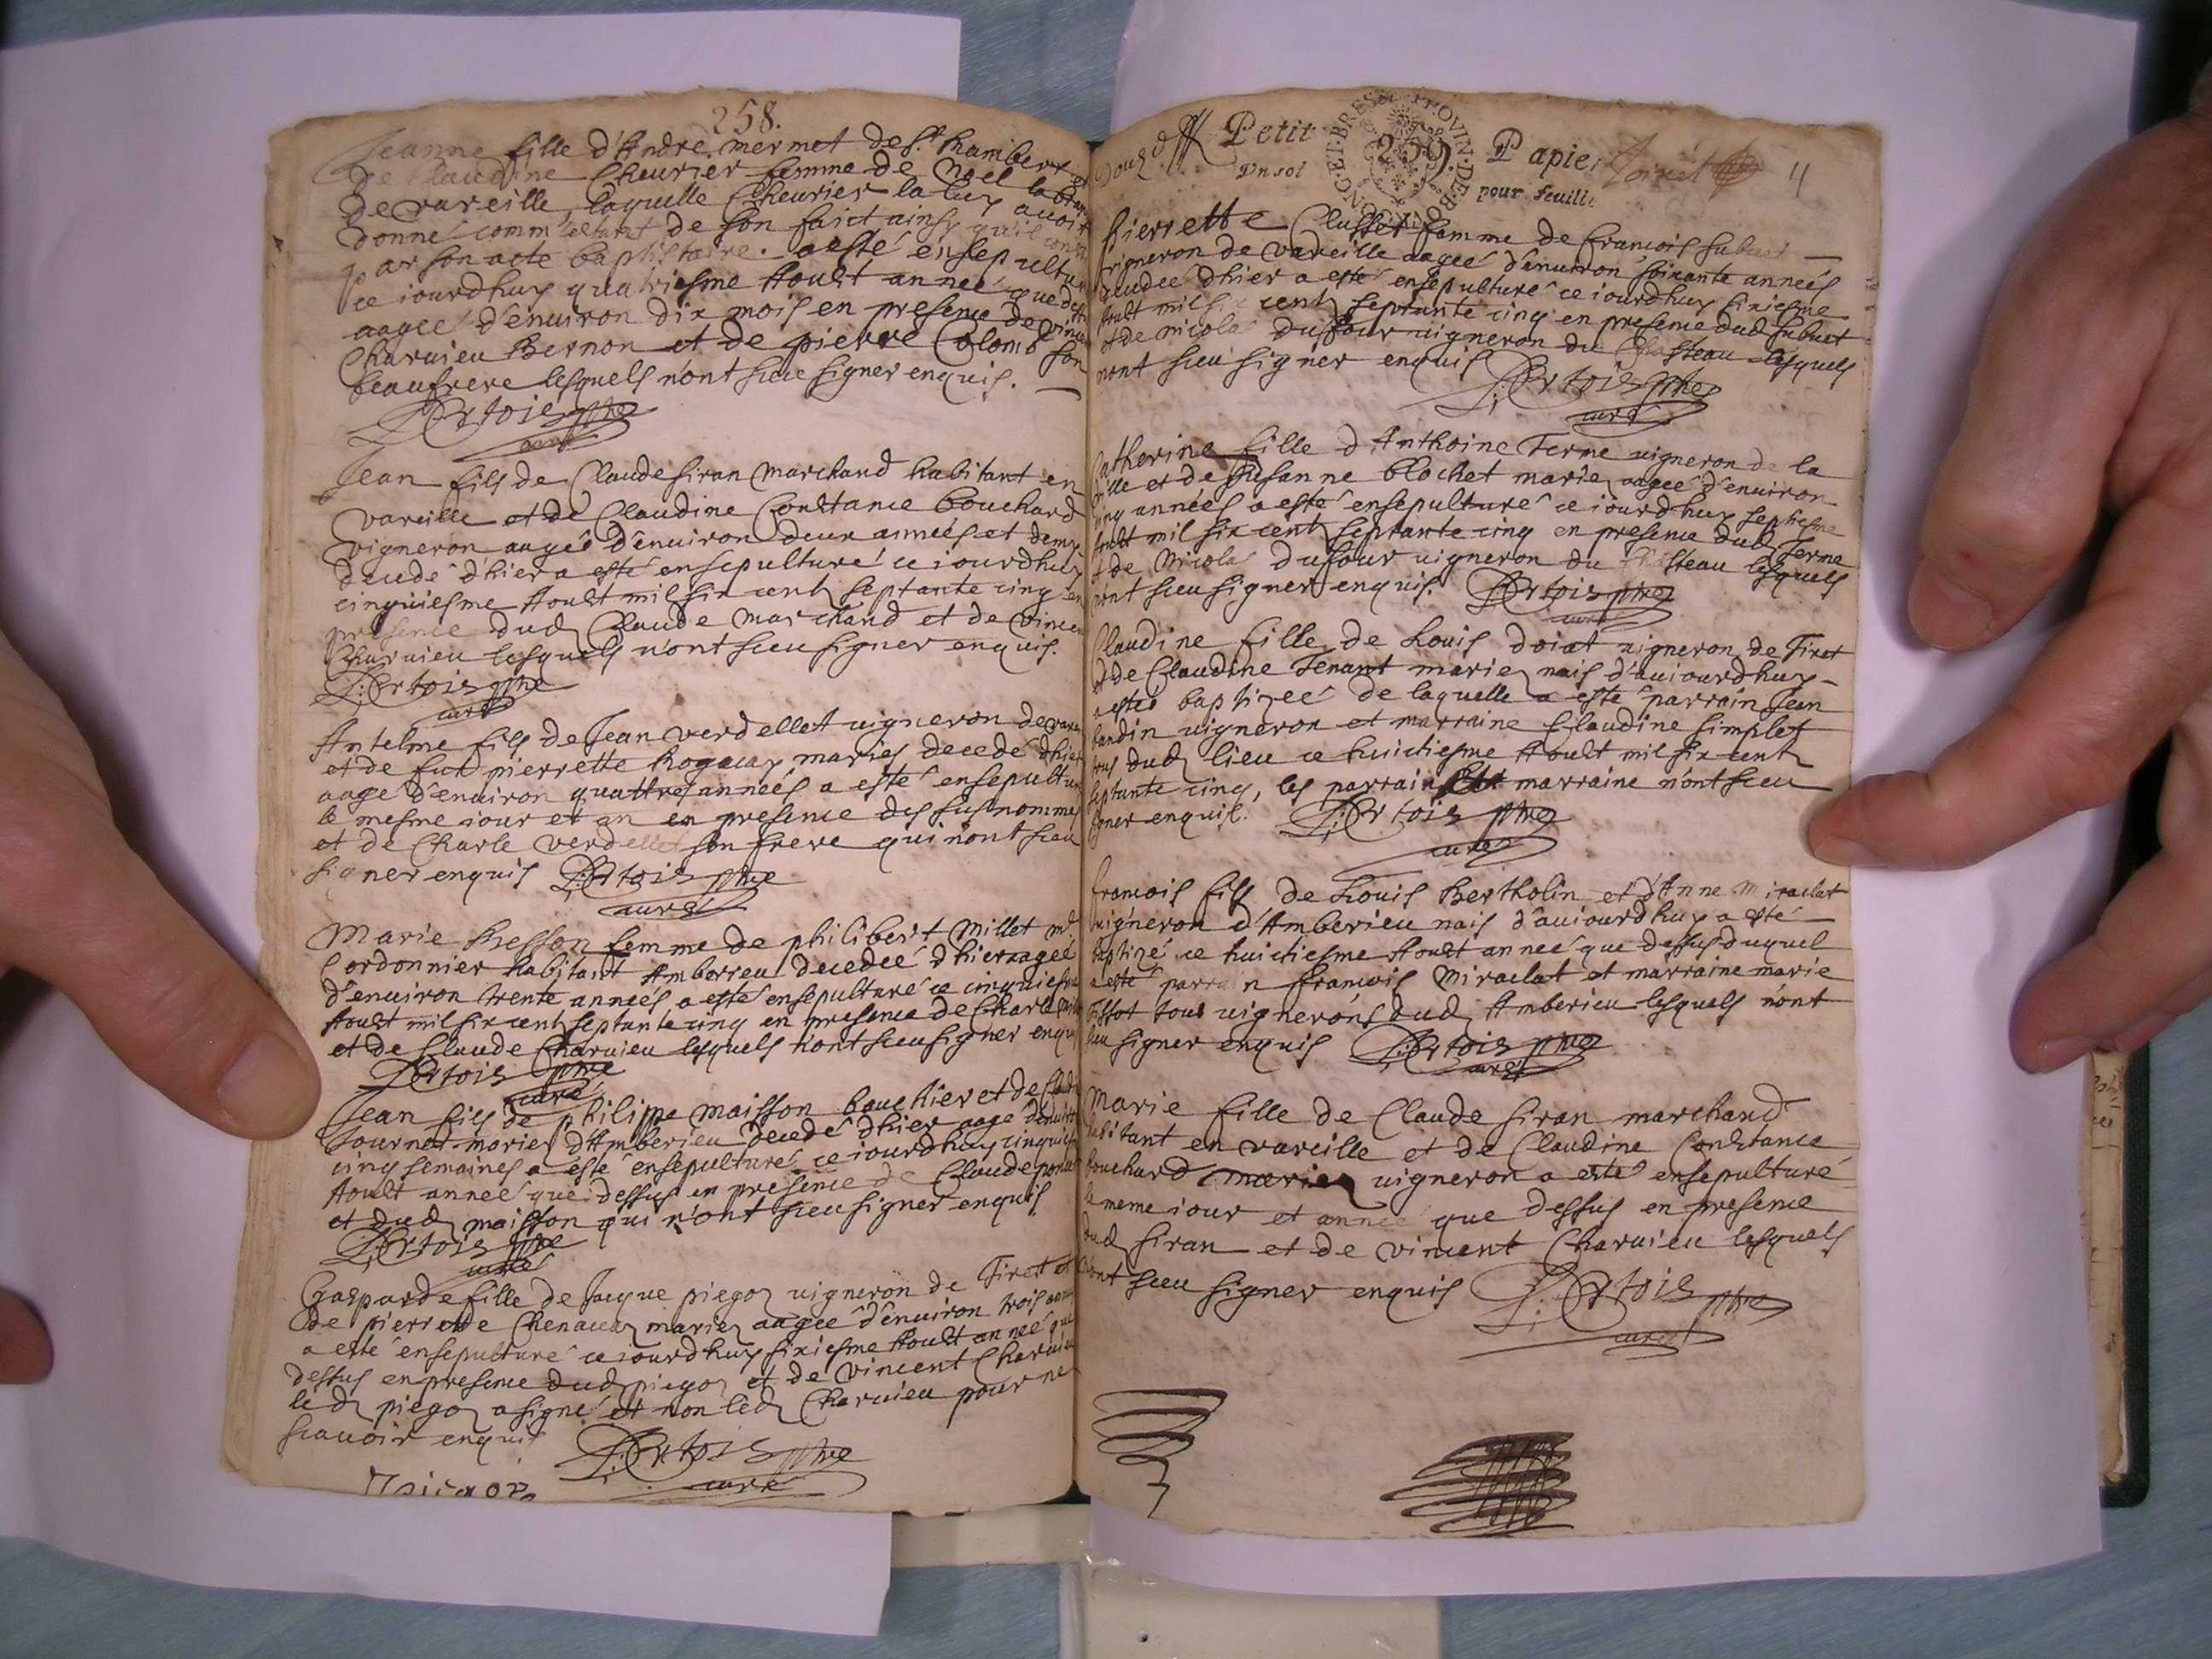 258.
Jeanne fille d'Andre mermet de St Rambert et
de Claudine Cheurier femme de Noel
de vareille, laquelle Cheurier la luy auoir
donné comm'estant de son faict ainsy qu'il
par son acte baptistaire. a esté ensepulture
ce iourdhuy quatriesme Aoust anneé que
aageé d'enuiron dix mois en presence de
Charuieu Bernon et de pierre Colomb son
beaufrere lesquels n'ont sceu signer enquis.
Ortois ptre
curé
Jean fils de Claude Siran Marchand habitant en
vareille et de Claudine Constance Bouchard
vigneron aageé d'enuiron deux anneés et demy
decedé d'hier a esté ensepulturé ce iourdhuy
cinquiesme Aoust mil six cents septante cinq en
presence dud Claude Marchand et de Vincen
Charuieu lesquels n'ont sceu signer enquis.
Ortois ptre
curé
Antelme fils de Jean verdellet uigneron de
et de fut pierrette mariés decedé d'hier
aagé d'enuiron quattre anneés a esté ensepultur
le mesme iour et an en presence des susnommés
et de Charle verdellet son frere qui n'ont sceu
signer enquis Ortois ptre
curé
Marie femme de philibert Millet
Cordonnier habitant Amberieu decedeé d'hier aageé
d'enuiron trente anneés a esté ensepulturé ce cinquiesme
Aoust mil six cents septante cinq en presence de Charle
et de Claude Charuieu lesquels n'ont sceu signer enquis
Ortois ptre
curé
Jean fils de philippe maisson bouchier et de
mariez d'Amberieu decedé d'hier aagé d'enuiron
cinq semaines a esté ensepulturé ce iourdhuy cinquies
Aoust anneé que dessus en presence de Claude
et dud maisson qui n'ont sceu signer enquis
Ortois ptre
curé
Gasparde fille de Jacque piegoz uigneron de Tiret et
de pierrette mariez aageé d'enuiron trois
a esté ensepulturé ce iourdhuy sixiesme Aoust anneé que
dessus en presence dud piegoz et de vincent Charuieu
led piegoz a signé et non led Charuieu pour ne
scauoir enquis
Ortois ptre
curé
Petit Papier
Vn sol pour feuille
259.
BOVRGONG·ET·BRESSE PROVIN·DE
4
Pierrette femme de francois
vigneron de vareille aageé d'enuiron soixante anneés
decedeé d'hier a esté ensepulturé ce iourdhuy sixiesme
Aoust mil six cents septante cinq en presence dud
et de Nicolas dufour uigneron du Chasteau lesquels
n'ont sceu signer enquis Ortois ptre
curé
Catherine fille d'Anthoine Ferne uigneron de la
ville et de Susanne blochet mariez aageé d'enuiron
cinq anneés a esté ensepulturé ce iourdhuy septiesme
Aoust mil six cents septante cinq en presence dud Ferne
et de Nicolas dufour uigneron du Chasteau lesquels
n'ont sceu signer enquis. Ortois ptre
curé
Claudine fille de Louis doiat uigneron de Tiret
et de Claudine Tenant mariez nais d'auiourdhuy
a esté baptizeé de laquelle a esté parrain Jean
uigneron et marraine Claudine simplet
tous dud lieu ce huictiesme Aoust mil six cents
septante cinq, les parrain et marraine n'ont sceu
signer enquis. Ortois ptre
curé
francois fils de Louis Bertholin et d'Anne Miraclat
uigneron d'Amberieu nais d'auiourdhuy a esté
baptizé ce huictiesme Aoust anneé que dessus duquel
a esté parrain francois Miraclat et marraine marie
Tissot tous uignerons dud Amberieu lesquels n'ont
sceu signer enquis Ortois ptre
curé
Marie fille de Claude Siran marchand
habitant en vareille et de Claudine Constance
bouchard mariez uigneron a esté ensepulturé
le meme iour et anneé que dessus en presence
dud Siran et de vincent Charuieu lesquels
n'ont sceu signer enquis Ortois ptre
curé